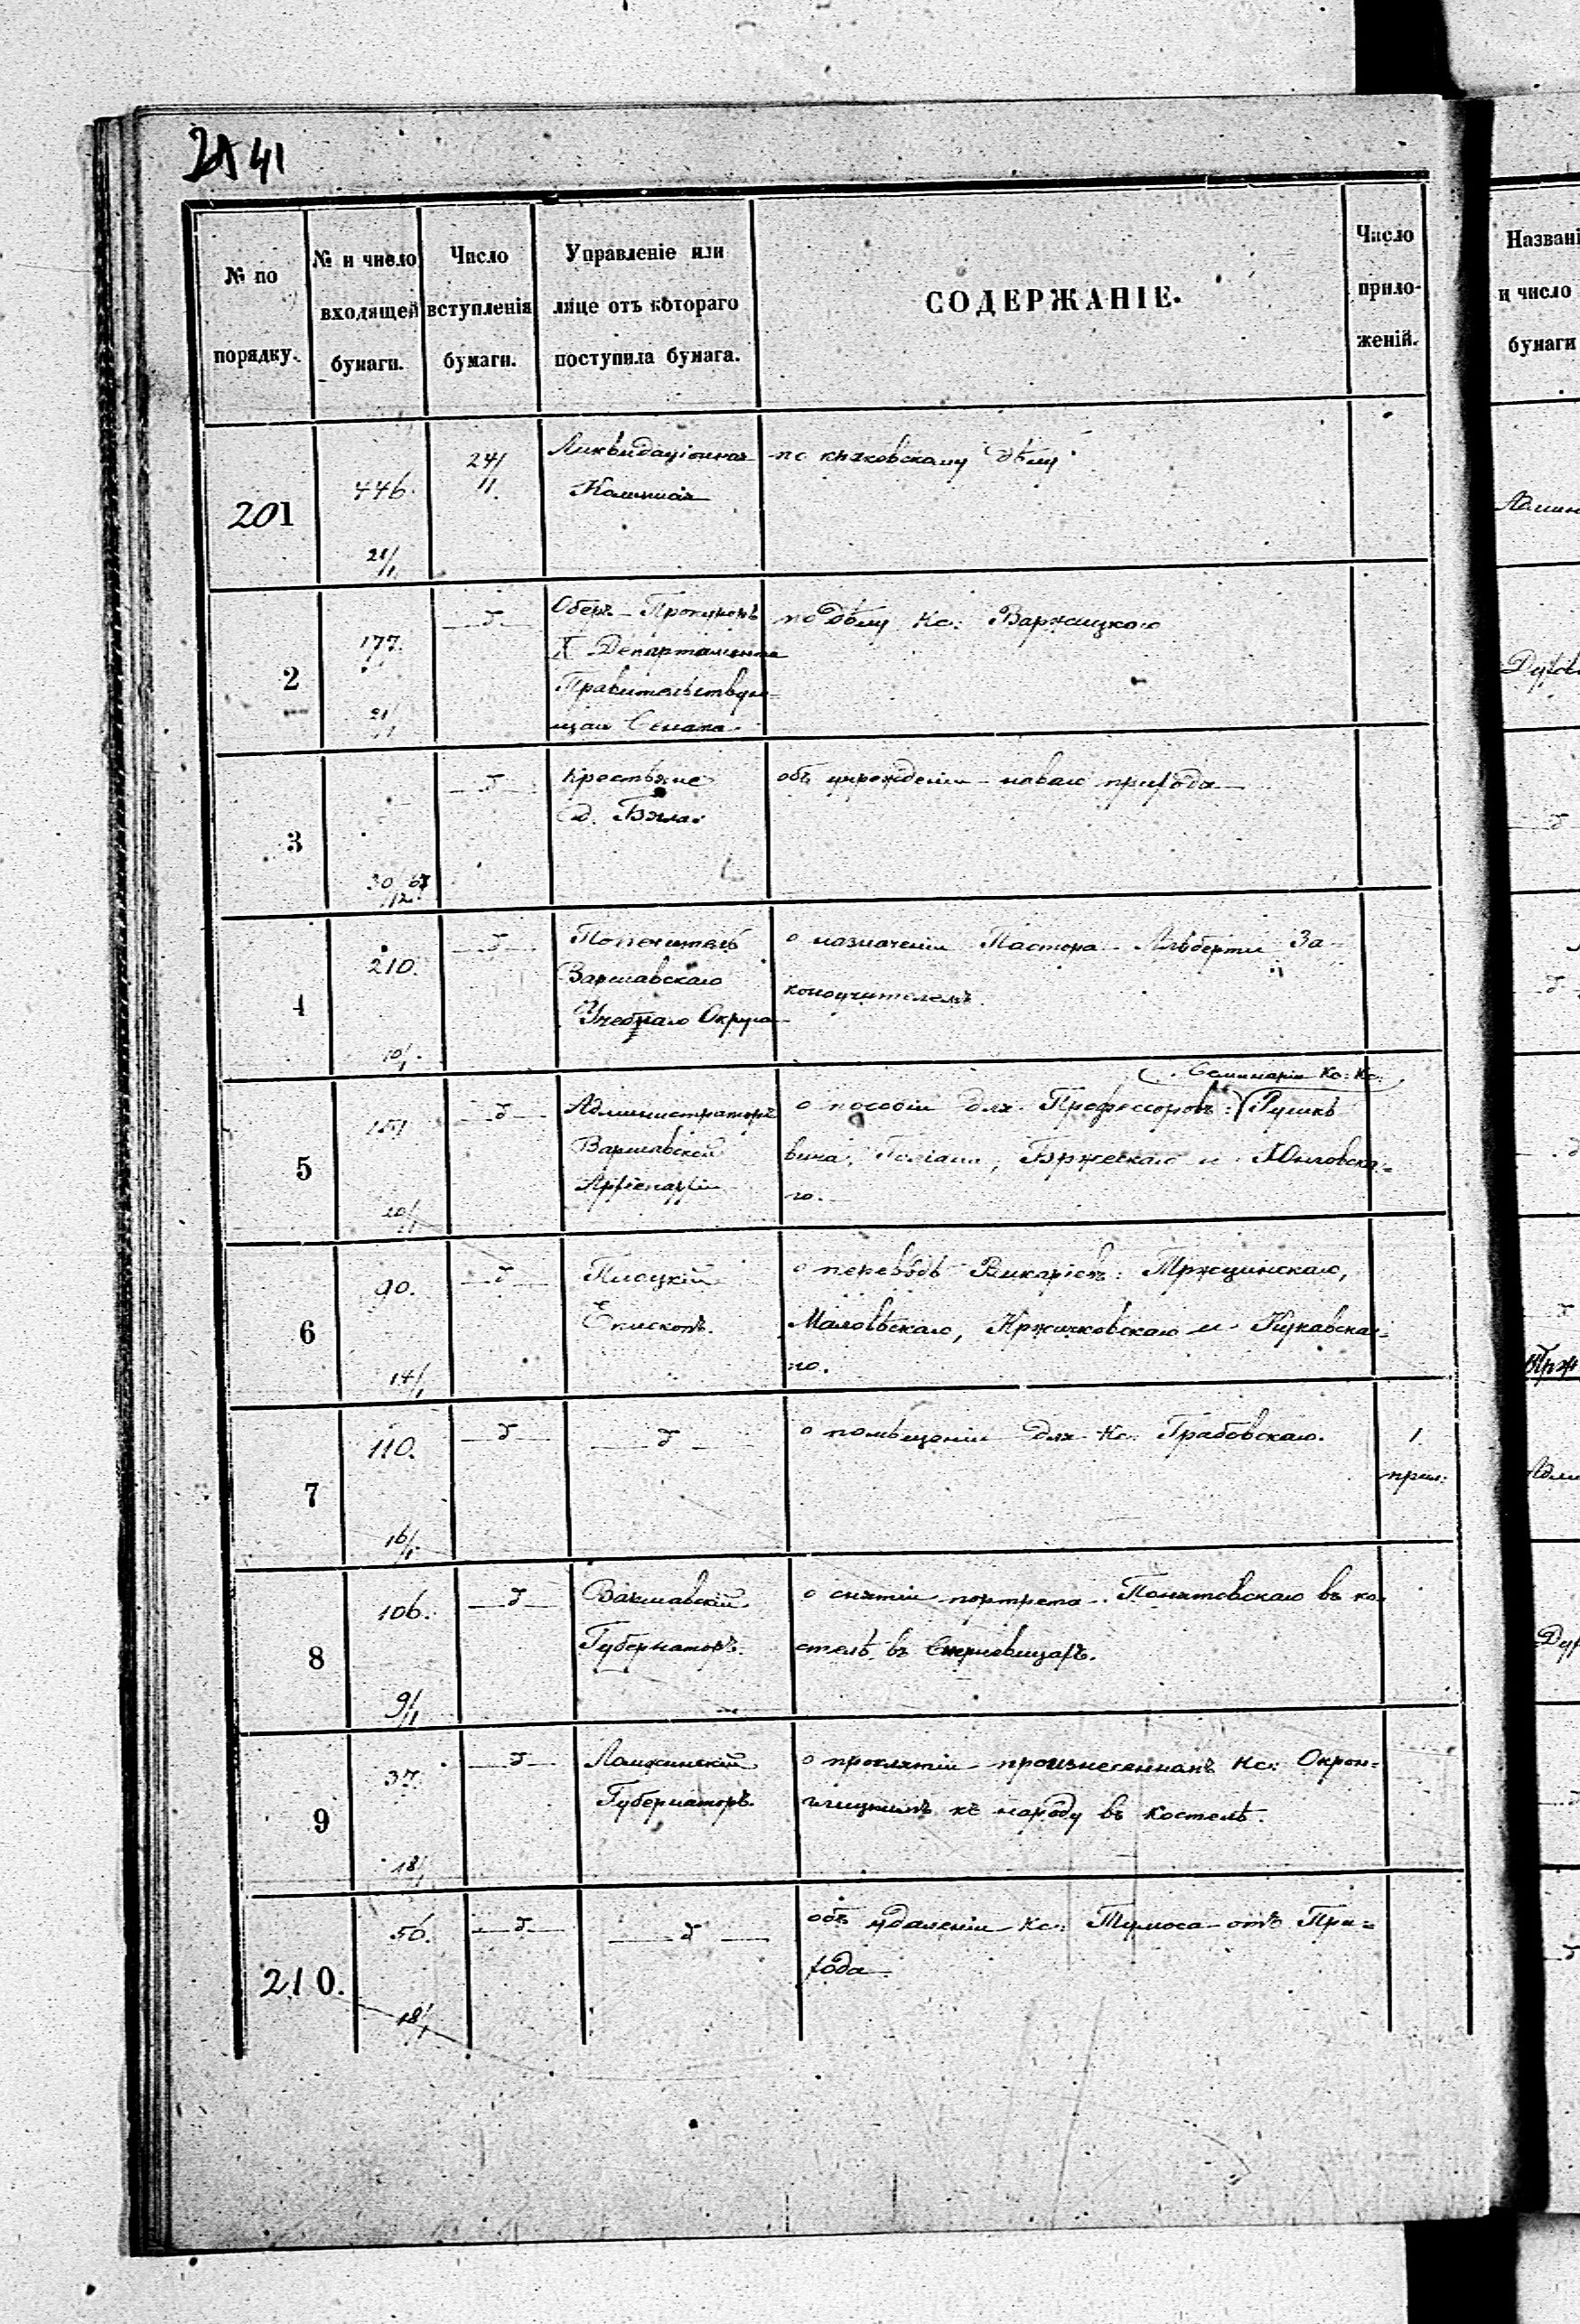 41
№ по порядку.
№ и число входящей бумаги.
Число вступленія бумаги.
Управленіе или лице отъ котораго поступила бумага.
СОДЕРЖАНІЕ.
Число приложеній.
201
446.
21/1
24/
11.
Ликвидаціонная
Комиссія
по дѣлу
2
177.
21/
д
Оберъ-Прокуроръ
X Департамента
Правительствую-
щаго Сената.
по дѣлу Кс: Варжицкаго
3
30/12 67
д
Крестьяне
д. Бяла
объ учрежденіи новаго прихода
4
210.
10/1.
д
Попечитель
Варшавскаго
Учебнаго Округа
о назначеніи Пастора Альберти За-
коноучителемъ.
5
20/1
д
Администраторъ
Варшавской
Архіепархіи
Семинаріи Кс: Кс:
о пособіи для Профессоровъ:
вича, Бржескаго и
го.
6
90.
14/1
д
Плоцкій
Епископъ.
о переводѣ Викаріевъ: Тржцинскаго,
Маловѣскаго, Кржичковскаго и Кукавска-
го.
7
110.
16/1
д
д
о помѣщеніи для Кс: Грабовскаго.
1
прил:
8
106.
9/11
д
Варшавскій
Губернаторъ.
о снятіи портрета Понятовскаго въ ко-
стелѣ въ Скерневицахъ.
9
37.
18/1
д
Ломжинскій
Губернаторъ.
о проклятіи произнесенномъ Кс:
къ народу въ костелѣ.
210.
56.
18/1
д
д
объ удаленіи Кс: Тумоса отъ При-
хода
Названі
и число
бумаги